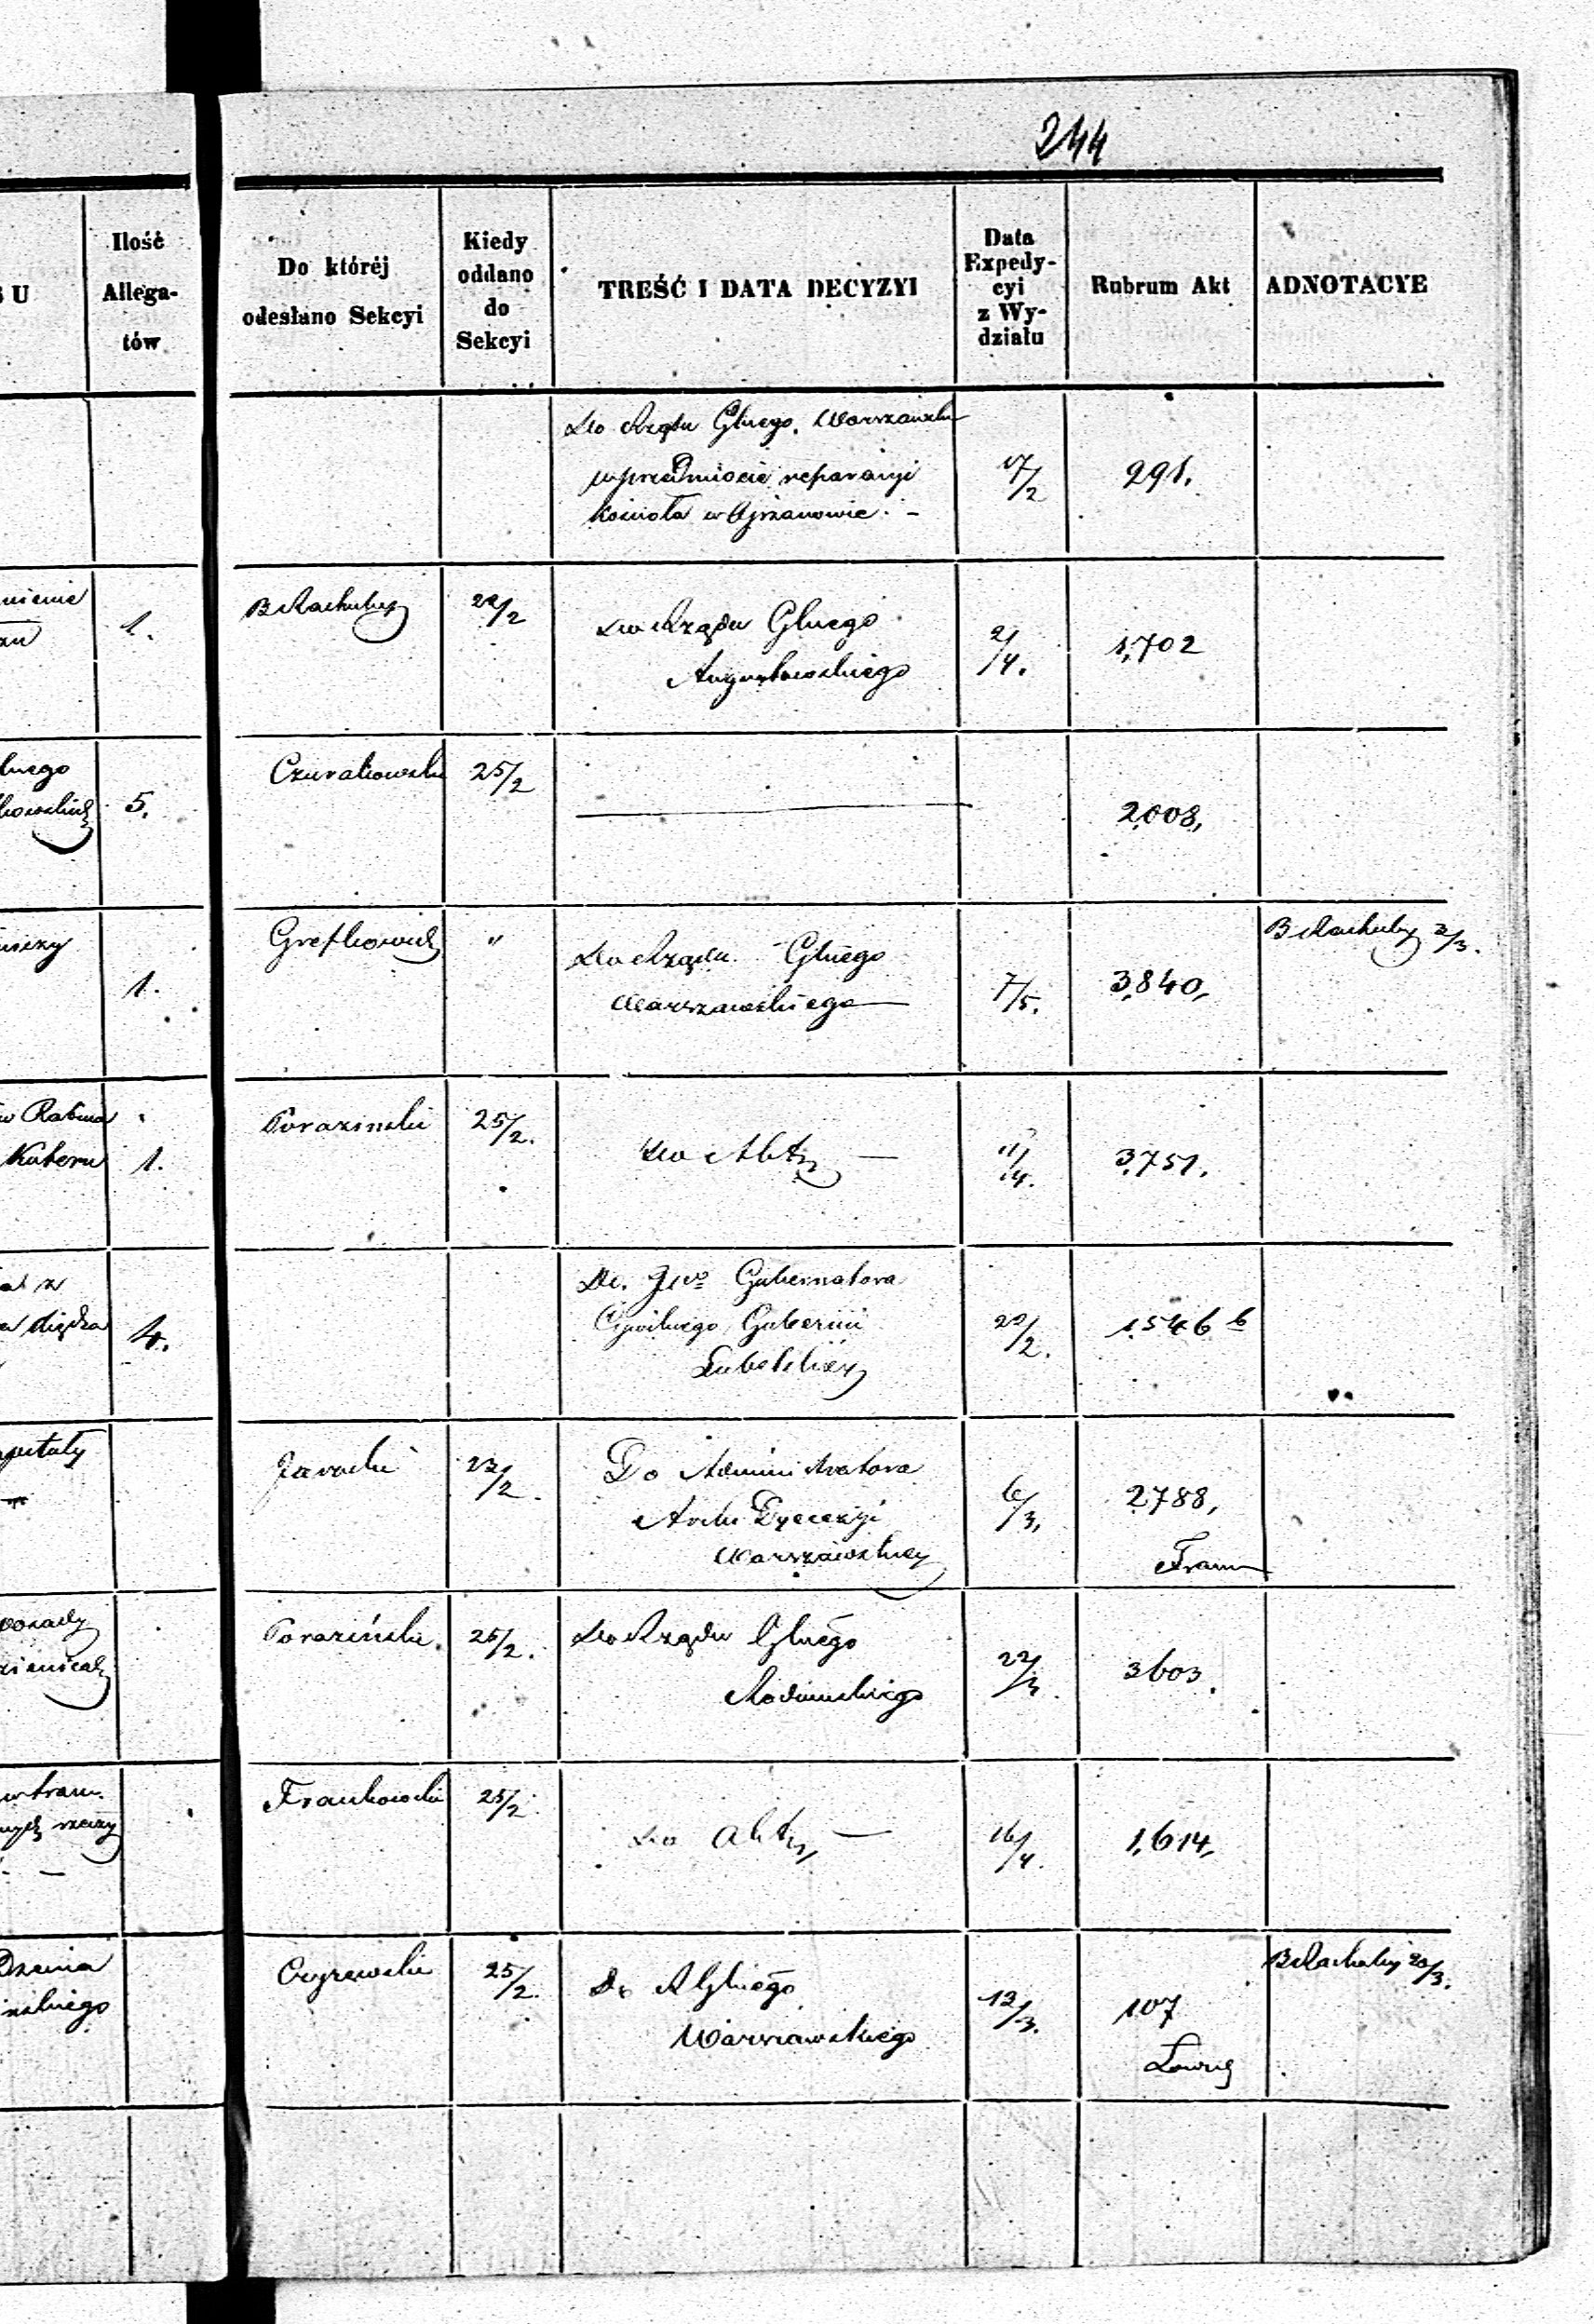 244
S U
Ilość
Allega-
tów
Do któréj
odesłano Sekcyi
Kiedy
oddano
do
Sekcyi
TREŚĆ I DATA DECYZYI
Data
Expedy-
cyi
z Wy-
działu
Rubrum Akt
ADNOTACYE
Do Rządu Glnego. Warszawsk
w przedmiocie reparacyi
Kościoła w
17/2
291.
1.
B Rachuby
22/2
Do Rządu Glnego
Augustowskiego
2/4.
1,702
lnego
kowskich
5.
Czurakowski
25/2
2,008,
1.
Grefkowicz
"
Do Rządu Glnego
Warszawskiego
7/5.
3,840,
B Rachuby 2/3.
w Rabina
1.
Poraziński
25/2.
Do Akt
11/4.
3,751.
4.
De. JWo Gubernatora
Cywilnego Gubernii
Lubelskiey
22/2.
1546 b
szpitaly
Jarocki
23/2.
Do Administratora
Archi Dyecezyi
Warszawskiey
6/3,
2788,
Poraziński.
25/2.
Do Rządu Glnego
Radomskiego
22/3.
3603.
rzeczy
Frankowski
25/2.
Do Akt
16/4.
1,614,
Dzenia
25/2.
Do R Glnego
Warszawskiego
13/3.
107
B Rachuby 20/3.